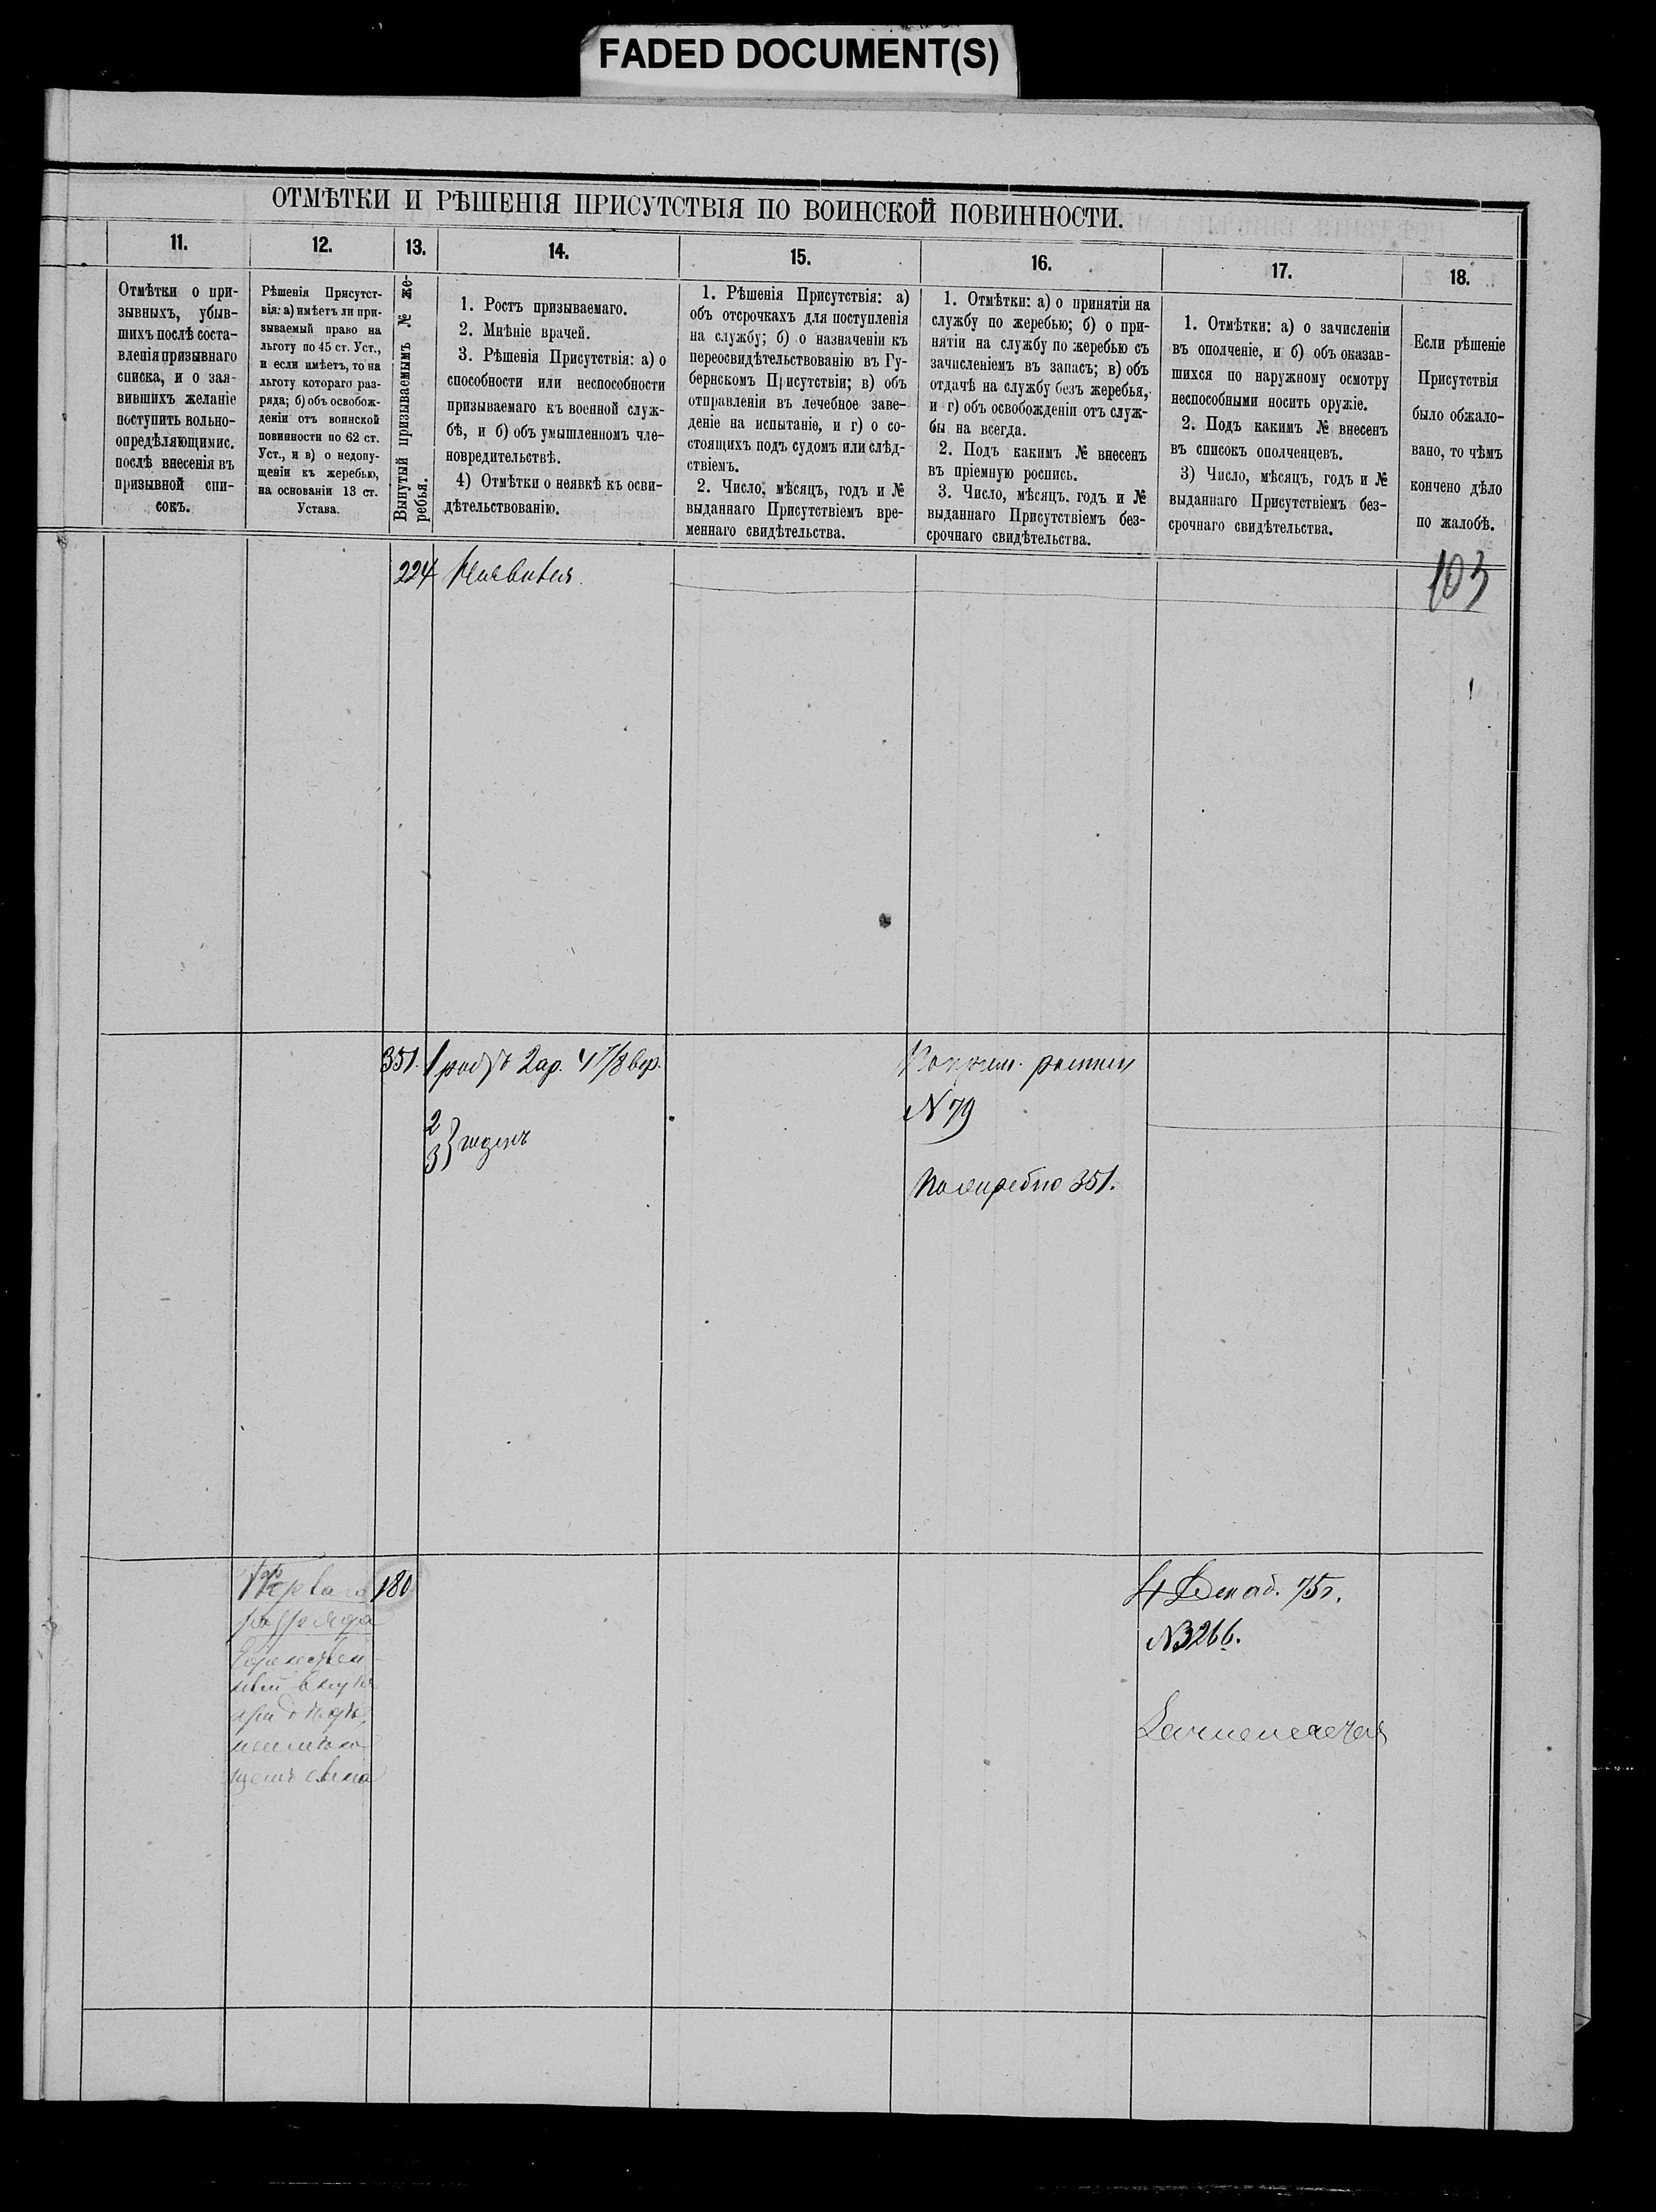 FADED DOCUMENT(S)
ОТМѢТКИ И РѢШЕНІЯ ПРИСУТСТВІЯ ПО ВОИНСКОЙ ПОВИННОСТИ.
11.
Отмѣтки о при-
зывныхъ, убыв-
шихъ послѣ соста-
вленія призывнаго
списка, и о зая-
вившихъ желаніе
поступить вольно-
опредѣляющимис.
послѣ внесенія въ
призывной спи-
сокъ.
12.
Рѣшенія Присутст-
вія: а) имѣетъ ли при-
зываемый право на
льготу по 45 ст. Уст.,
и если имѣетъ, то на
льготу котораго раз-
ряда; б) объ освобож-
деніи отъ воинской
повинности по 62 ст.
Уст., и в) о недопу-
щеніи къ жеребью,
на основаніи 13 ст.
Устава.
13.
Вынутый призываемымъ № же-
ребья.
14.
1. Ростъ призываемаго.
2. Мнѣніе врачей.
3. Рѣшенія Присутствія: а) о
способности или неспособности
призываемаго къ военной служ-
бѣ, и б) объ умышленномъ чле-
новредительствѣ.
4) Отмѣтки о неявкѣ къ осви-
дѣтельствованію.
15.
1. Рѣшенія Присутствія: а)
объ отсрочкахъ для поступленія
на службу; б) о назначеніи къ
переосвидѣтельствованію въ Гу-
бернскомъ Присутствіи; в) объ
отправленіи въ лечебное заве-
деніе на испытаніе, и г) о со-
стоящихъ подъ судомъ или слѣд-
ствіемъ.
2. Число, мѣсяцъ, годъ и №
выданнаго Присутствіемъ вре-
меннаго свидѣтельства.
16.
1. Отмѣтки: а) о принятіи на
службу по жеребью; б) о при-
нятіи на службу по жеребью съ
зачисленіемъ въ запасъ; в) объ
отдачѣ на службу безъ жеребья,
и г) объ освобожденіи отъ служ-
бы на всегда.
2. Подъ какимъ № внесенъ
въ пріемную роспись.
3. Число, мѣсяцъ. годъ и №
выданнаго Присутствіемъ без-
срочнаго свидѣтельства.
17.
1. Отмѣтки: а) о зачисленіи
въ ополченіе, и б) объ оказав-
шихся по наружному осмотру
неспособными носить оружіе.
2. Подъ какимъ № внесенъ
въ списокъ ополченцевъ.
3) Число, мѣсяцъ, годъ и №
выданнаго Присутствіемъ без-
срочнаго свидѣтельства.
18.
Если рѣшеніе
Присутствія
было обжало-
вано, то чѣмъ
кончено дѣло
по жалобѣ.
224 Неявился.
103
351. 1 ростъ 2 ар. 4 7/8 вер.
2
3 } годенъ
По пріем. росписи
N 79
По жеребью 351.
Перваго
разряда
180
4 Декаб. 75 г.
N 3266.